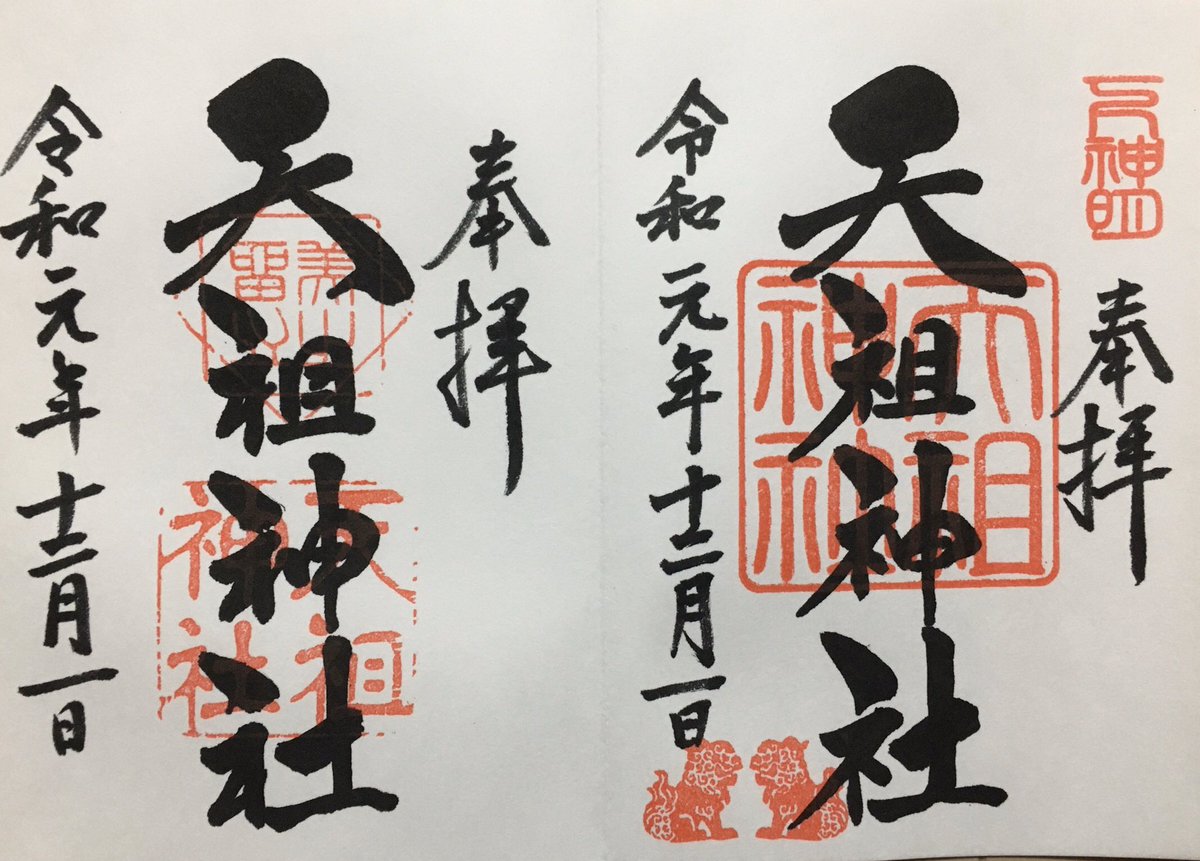 奉拝
天祖神社
天祖
神社
令和元年十二月一日
奉拝
天祖神社
天祖
神社
令和元年十二月一日